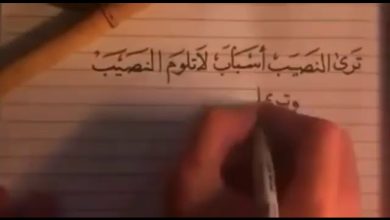 تَرىٰ النَصَيَب أسْبَابَ لاَتلومَ النَصَيْبَ
وترىا